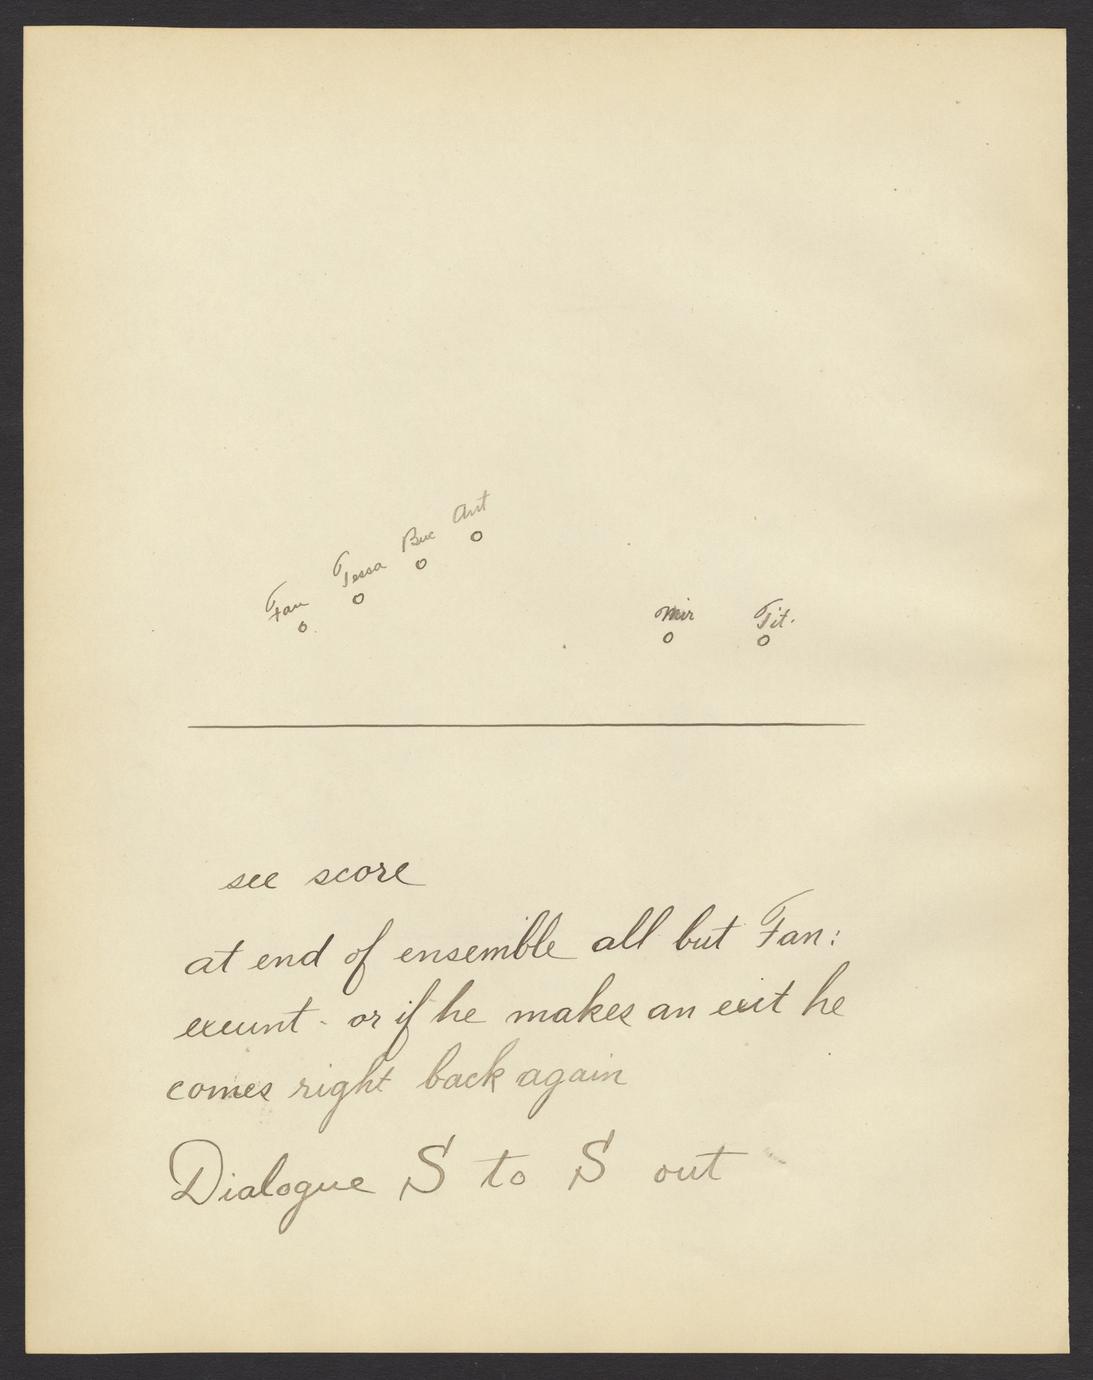 Ant
Buc
Tessa
Fan
Mir Tit.
see score
at end of ensemble all but Fan:
exeunt - or if he makes an exit he
comes right back again
Dialogue S to S out